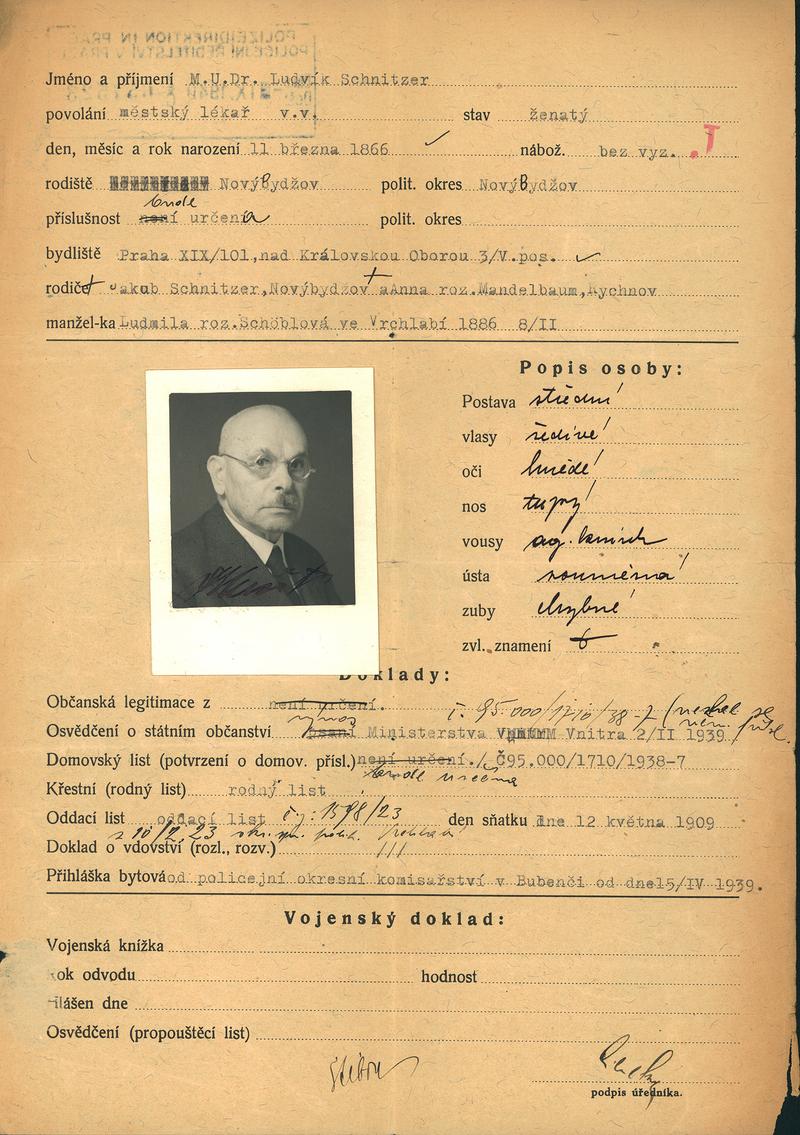 POLIZEIDIREKTION IN PRAG
POLICEJNÍ ŘEDITELSTVÍ V PRAZE
Jméno a příjmení M.U.Dr. Ludvík Schnitzer
povolání městský lékař v.v. stav ženatý
den, měsíc a rok narození 11 března 1866 nábož. bez vyz. J
rodiště NovýBydžov polit. okres NovýBydžov
bude
příslušnost není určena polit. okres
bydliště Praha XIX/101,nad Královskou Oborou 3/V.pos.
rodiče Jakub Schnitzer,Novýbydžov aAnna roz.Mandelbaum,Rychnov
manžel-ka Ludmila roz.Schöblová ve Vrchlabí 1886 8/II
Popis osoby:
Postava střední
vlasy šedivé
oči hnědé
nos tupý
vousy ang. knírek
ústa souměrná
zuby chybné
zvl. znamení
Doklady:
Občanská legitimace z není určení.
č. 95.000/1710/38-7
výnos
Osvědčení o státním občanství psaní Ministerstva Vnitra 2/II 1939
Domovský list (potvrzení o domov. přísl.) není určení./Č95.000/1710/1938-7
bude určena
Křestní (rodný list) rodný list
Oddací list oddací list den sňatku dne 12 května 1909
Doklad o vdovství (rozl., rozv.) ///
Přihláška bytová od policejní okresní komisařství v Bubenči od dne15/IV 1939.
Vojenský doklad:
Vojenská knížka
ok odvodu hodnost
hlášen dne
Osvědčení (propouštěcí list)
podpis úředníka.